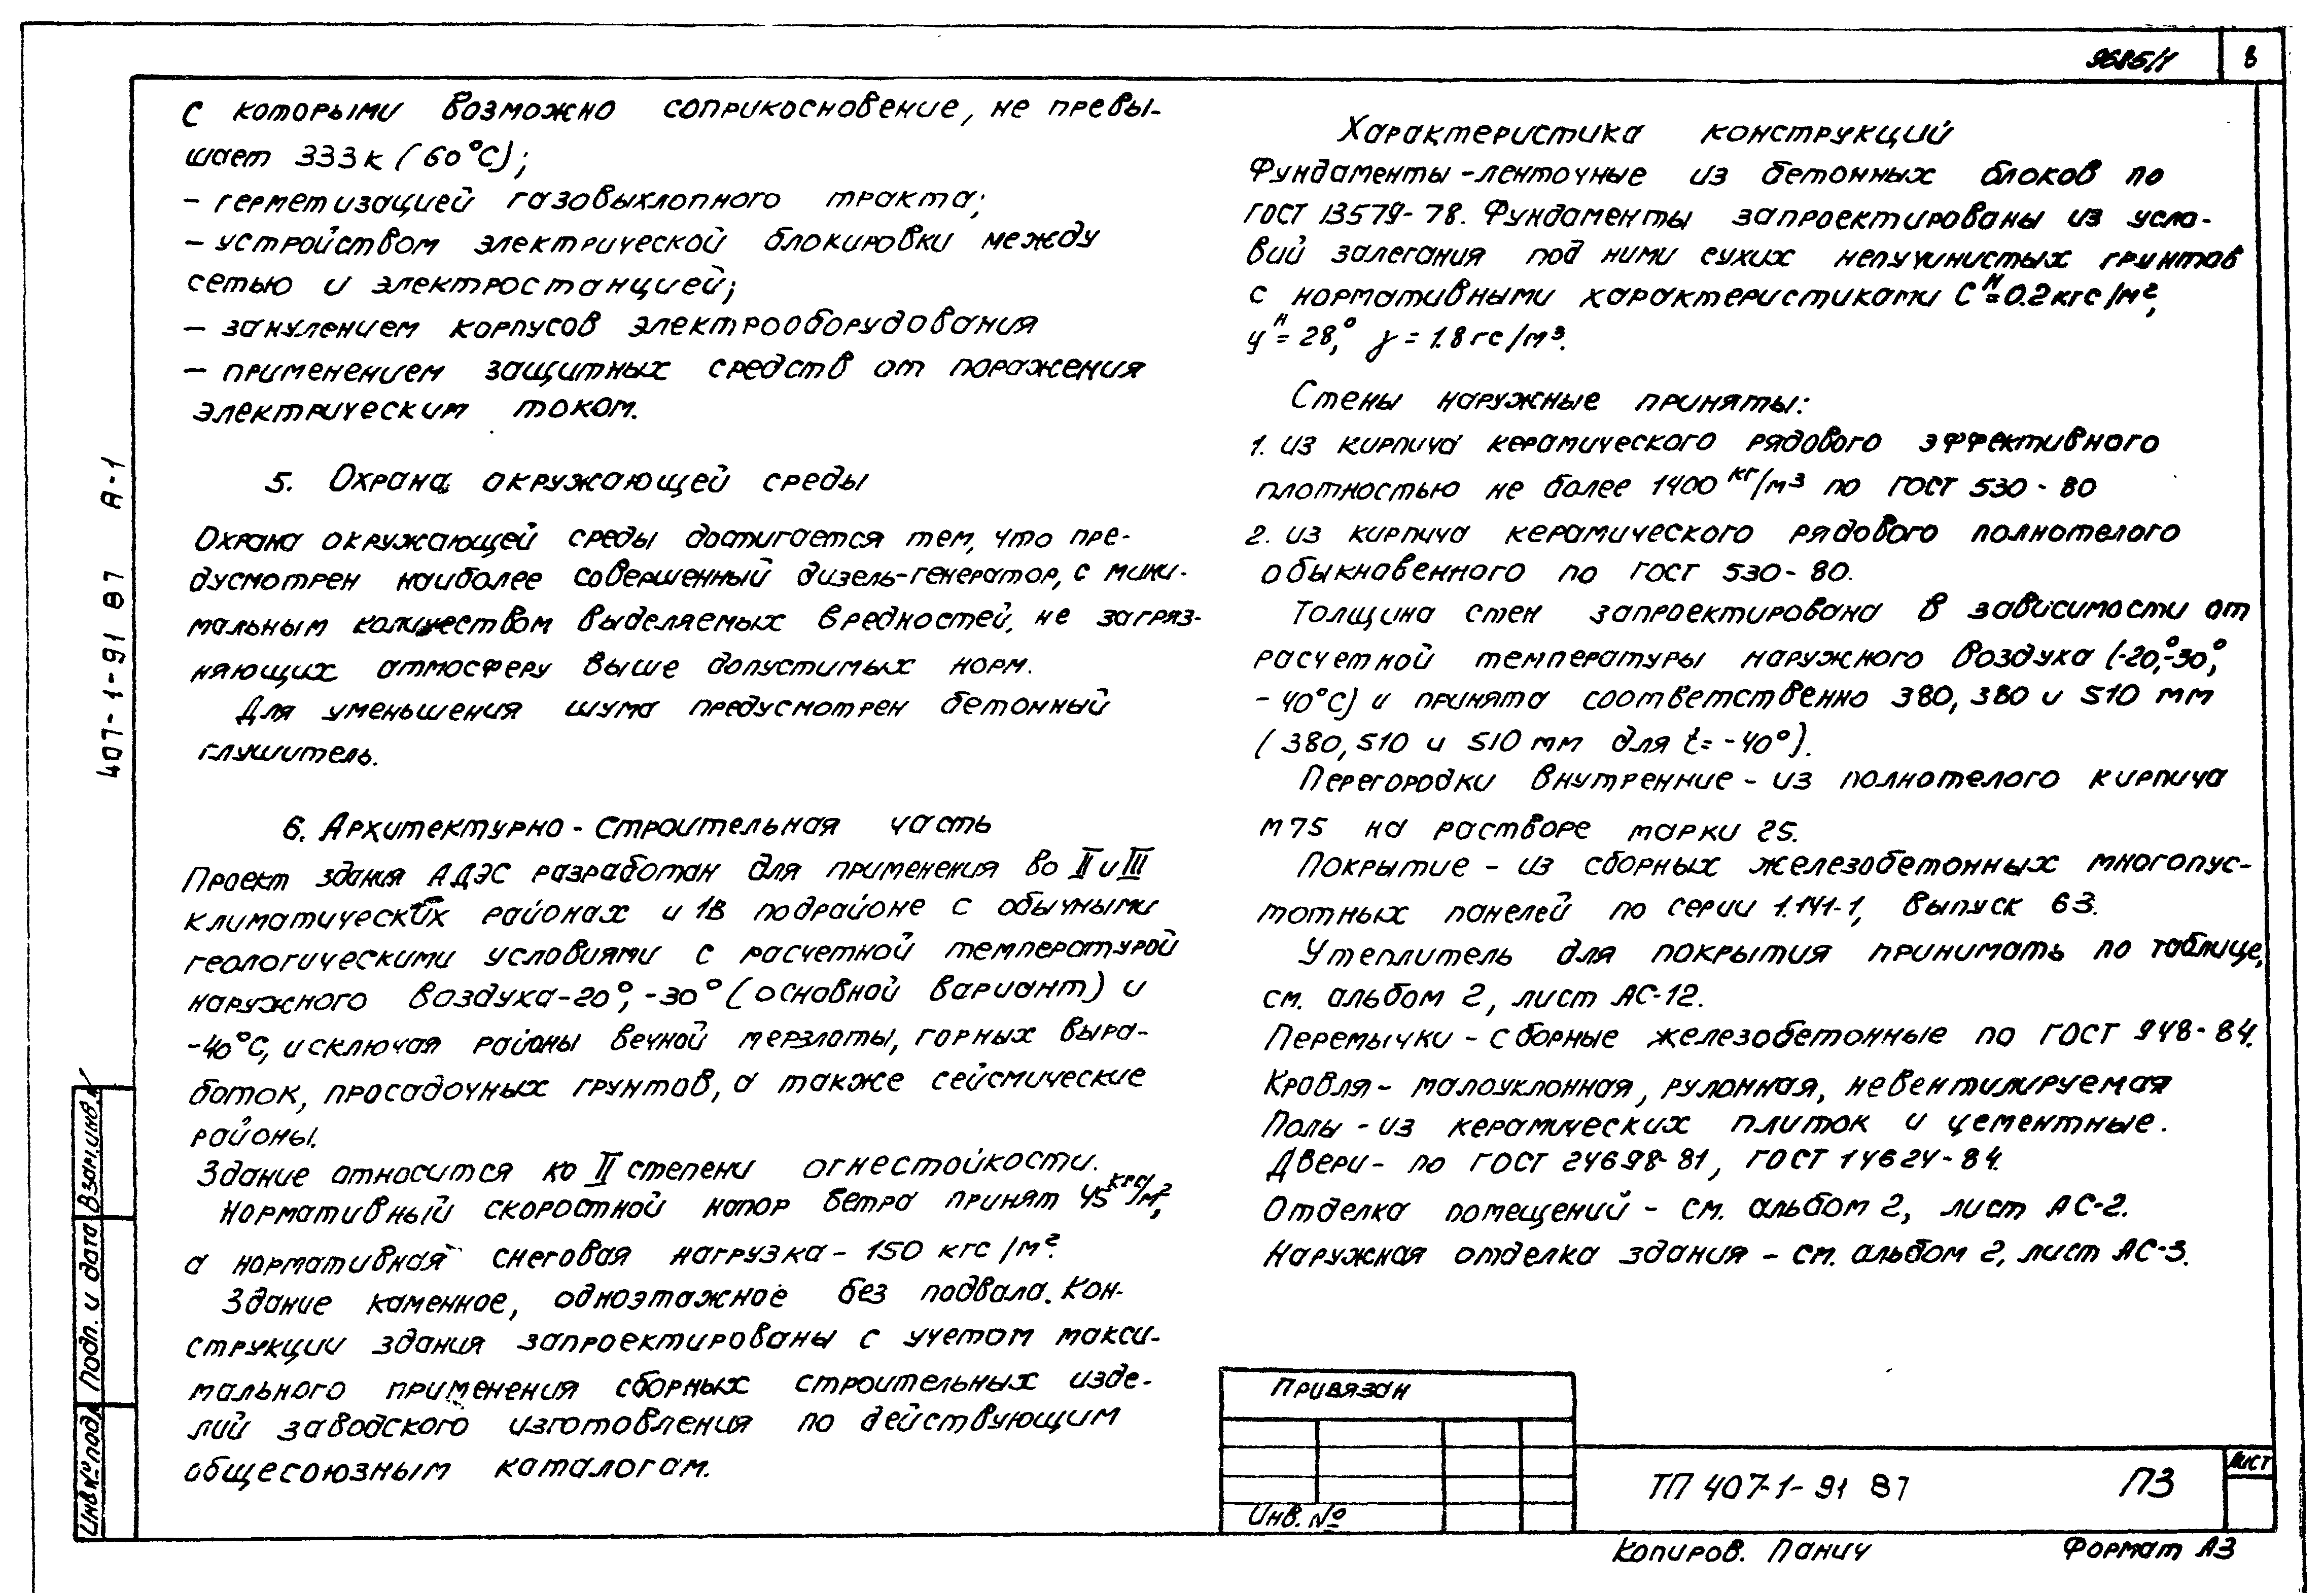 9685/1
8
с которыми возможно соприкосновение, не превы-
шает 333к (60°С);
- герметизацией газовыхлопного тракта;
- устройством электрической блокировки между
сетью и электростанцией;
- занулением корпусов электрооборудования
- применением защитных средств от поражения
электрическим током.
5. Охрана окружающей среды
Охрана окружающей среды достигается тем, что пре-
дусмотрен наиболее совершенный дизель-генератор, с мини-
мальным количеством выделяемых вредностей, не загряз-
няющих атмосферу выше допустимых норм.
Для уменьшения шума предусмотрен бетонный
глушитель.
6. Архитектурно-строительная часть
Проект здания АДЭС разработан для применения во II и III
климатических районах и 1В подрайоне с обычными
геологическими условиями с расчетной температурой
наружного воздуха -20°, -30° (основной вариант) и
-40°С, исключая районы вечной мерзлоты, горных выра-
боток, просадочных грунтов, а также сейсмические
районы.
Здание относится ко II степени огнестойкости.
Нормативный скоростной напор ветра принят 45 кгс/м²,
а нормативная снеговая нагрузка - 150 кгс/м².
Здание каменное, одноэтажное без подвала. Кон-
струкции здания запроектированы с учетом макси-
мального применения сборных строительных изде-
лий заводского изготовления по действующим
общесоюзным каталогам.
Характеристика конструкций
Фундаменты - ленточные из бетонных блоков по
ГОСТ 13579-78. Фундаменты запроектированы из усло-
вий залегания под ними сухих непучинистых грунтов
с нормативными характеристиками Cᴴ=0.2кгс/м²,
φᴴ=28°, γ=1.8гс/м³.
Стены наружные приняты:
1. из кирпича керамического рядового эффективного
плотностью не более 1400 кг/м³ по ГОСТ 530-80
2. из кирпича керамического рядового полнотелого
обыкновенного по ГОСТ 530-80.
Толщина стен запроектирована в зависимости от
расчетной температуры наружного воздуха (-20°,-30°,
-40°С) и принята соответственно 380, 380 и 510 мм
(380, 510 и 510 мм для t=-40°).
Перегородки внутренние - из полнотелого кирпича
М75 на растворе марки 25.
Покрытие - из сборных железобетонных многопус-
тотных панелей по серии 1.141-1, выпуск 63.
Утеплитель для покрытия принимать по таблице,
см. альбом 2, лист АС-12.
Перемычки - сборные железобетонные по ГОСТ 948-84.
Кровля - малоуклонная, рулонная, невентилируемая
Полы - из керамических плиток и цементные.
Двери - по ГОСТ 24698-81, ГОСТ 14624-84.
Отделка помещений - см. альбом 2, лист АС-2.
Наружная отделка здания - см. альбом 2, лист АС-3.
407-1-91 87 А-1
Взам.инв.
Подп. и дата
Инв.№ подл
Привязан
Инв. №
ТП 407-1-91 87
ПЗ
Лист
Копиров. Панич
Формат А3